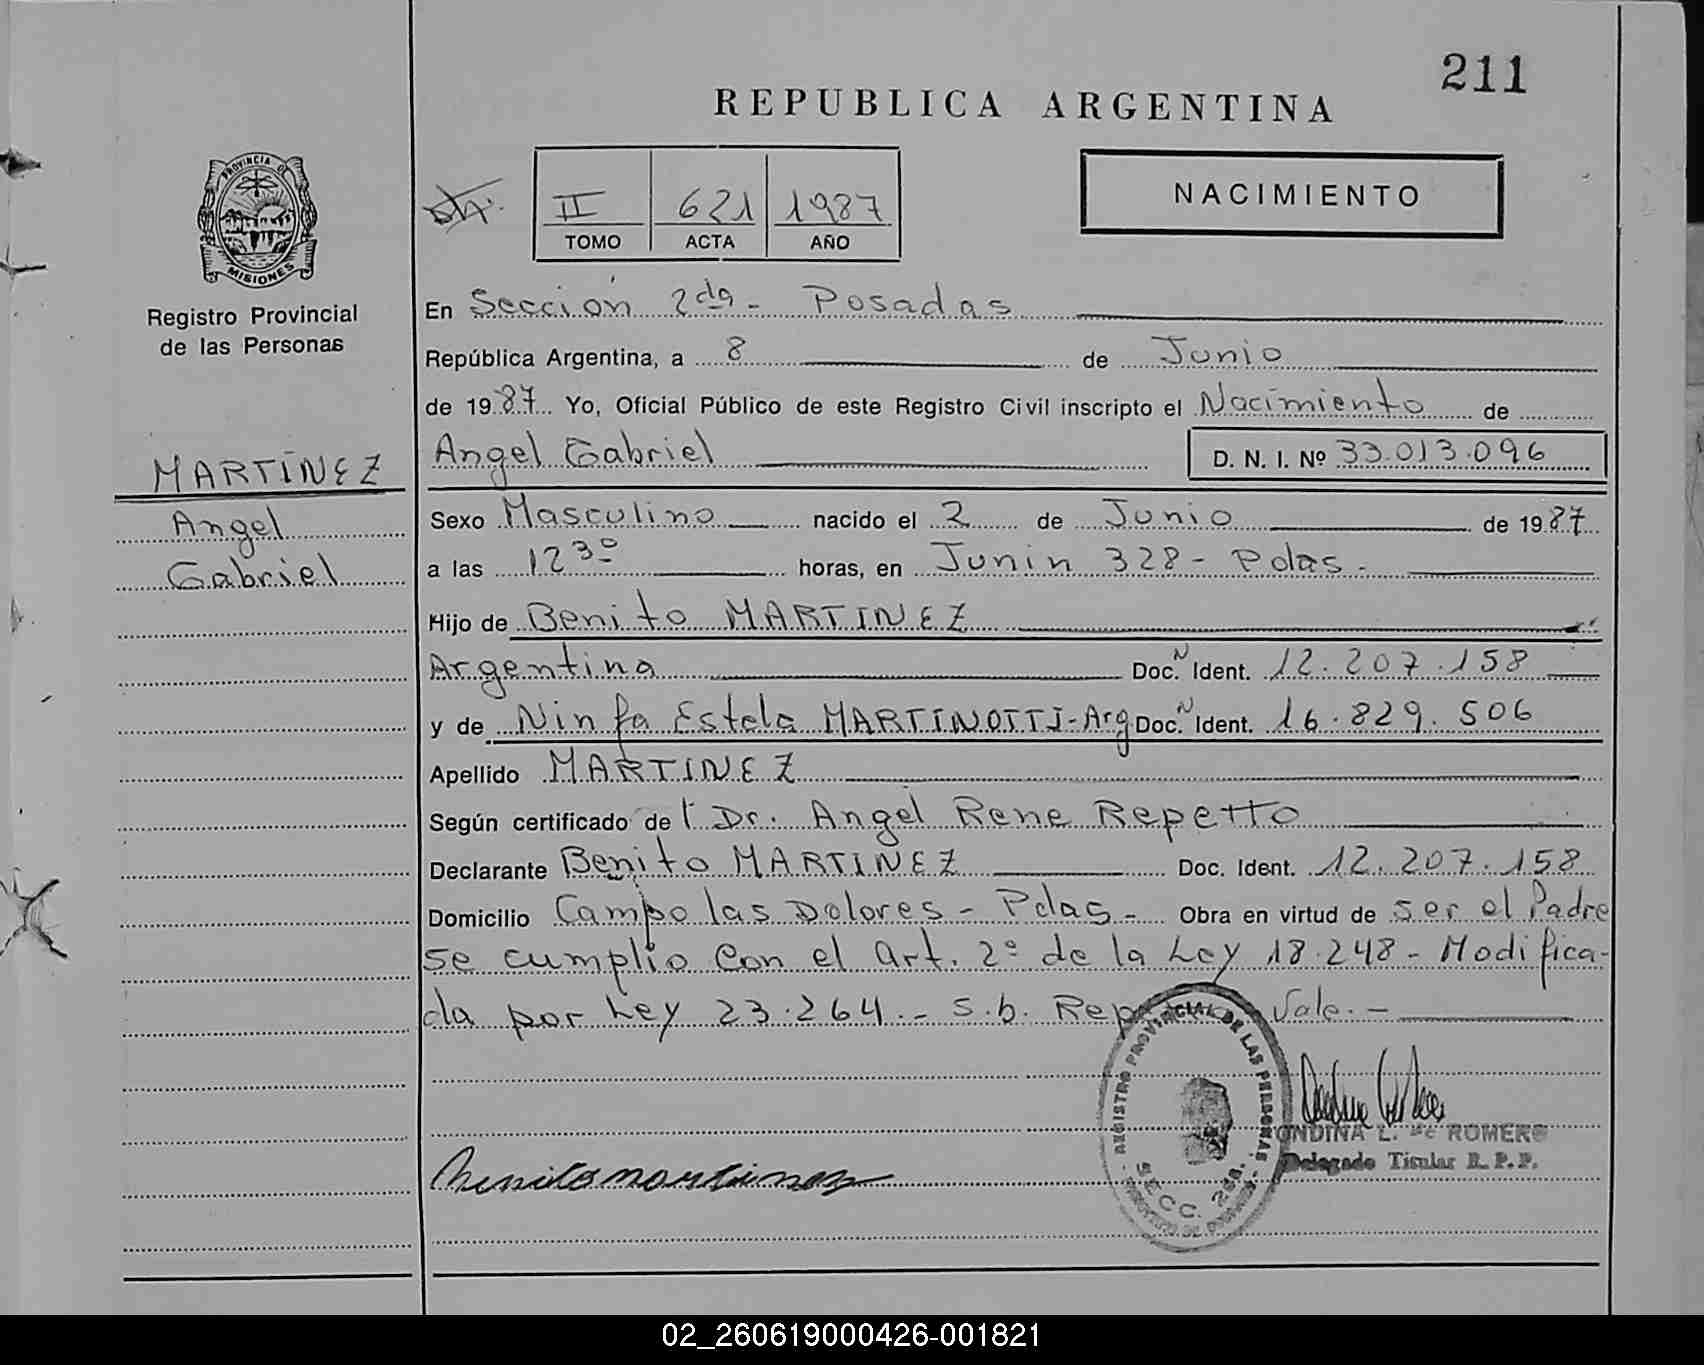 211
REPUBLICA ARGENTINA
PROVINCIA DE
MISIONES
Registro Provincial
de las Personas
II 621 1987
TOMO ACTA AÑO
NACIMIENTO
En Sección 2da - Posadas
República Argentina, a 8 de Junio
de 1987. Yo, Oficial Público de este Registro Civil inscripto el Nacimiento de
Angel Gabriel D. N. I. Nº 33.013.096
MARTINEZ
Angel
Gabriel
Sexo Masculino nacido el 2 de Junio de 1987
a las 12 30 horas, en Junin 328 - Pdas.
Hijo de Benito MARTINEZ
Argentina Doc. N Ident. 12.207.158
y de Ninfa Estela MARTINOTTI - Arg Doc. N Ident. 16.829.506
Apellido MARTINEZ
Según certificado de l Dr. Angel Rene Repetto
Declarante Benito MARTINEZ Doc. Ident. 12.207.158
Domicilio Campo las Dolores - Pdas - Obra en virtud de ser el Padre
se cumplio con el art. 2º de la Ley 18.248 - Modifica-
da por Ley 23.264 .- s.b. Vale.-
REGISTRO PROVINCIAL DE LAS PERSONAS
SECC. 2da.
ONDINA L. de ROMERO
Delegado Titular R. P. P.
Benito martinez
02_260619000426-001821